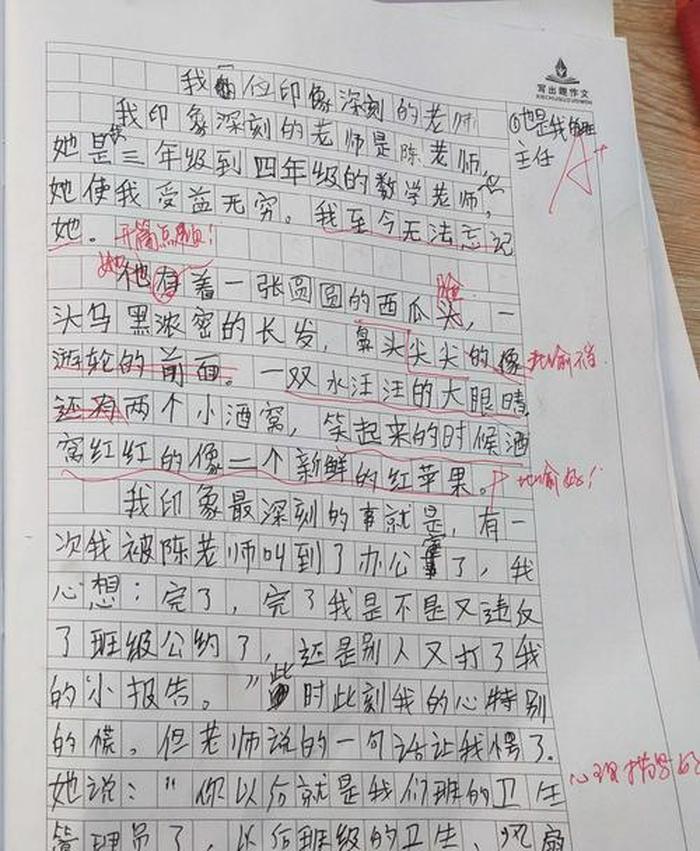 我一位印像深刻的老师
我印象深刻的老师是陈老师,
她是我三年级到四年级的数学老师,
她使我受益无穷。我至今无法忘记
她。开篇点题!
①也是我的班
主任
A+
写出趣作文
她
他有着一张圆圆的西瓜头,一
脸
头乌黑浓密的长发,鼻头尖尖的像
游轮的前面。一双水汪汪的大眼睛
还有两个小酒窝,笑起来的时候酒
窝红红的像二个新鲜的红苹果。
比喻好!
我印象最深刻的事就是,有一
次我被陈老师叫到了办公室了,我
心想:完了,完了我是不是又违反
了班级公约了,还是别人又打了我
的小报告。”此时此刻我的心特别
的慌。但老师说的一句话让我愣了.
心理描写好
她说:“你以后就是我们班的卫生
管理员了,以后班级的卫生、风扇